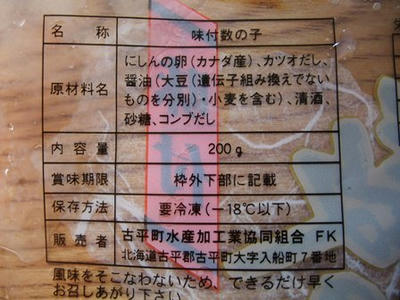 名称 味付数の子
原材料名 にしんの卵(カナダ産)、カツオだし、
醤油(大豆(遺伝子組み換えでない
ものを分別)・小麦を含む)、清酒、
砂糖、コンブだし
内容量 200g
賞味期限 枠外下部に記載
保存方法 要冷凍(−18℃以下)
販売者 古平町水産加工業協同組合 FK
北海道古平郡古平町大字入船町7番地
風味をそこなわないため、できるだけ早く
お召しあがり下さい